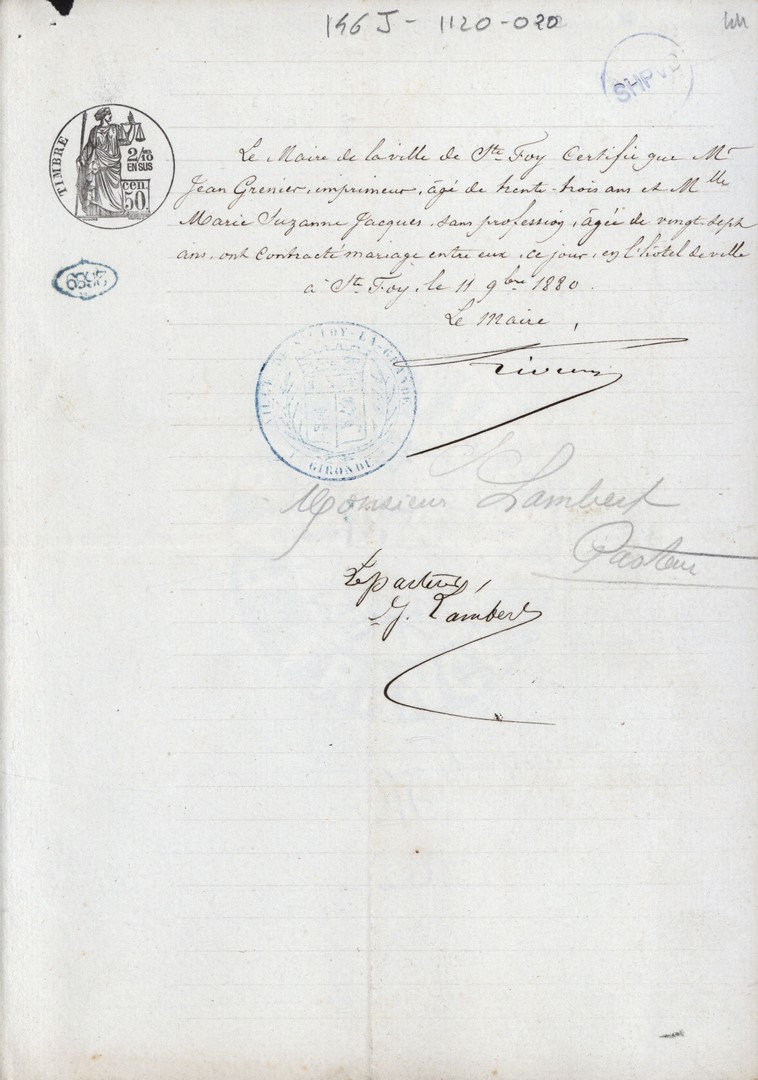 146 J - 1120 - 020
SHPVD
TIMBRE
2/10 EN SUS
cen. 50.
Le Maire de la ville de Ste Foy Certifie que Mr
Jean Grenier, imprimeur, âgé de trente-trois ans et Mlle
Marie Suzanne Jacques, sans profession, âgée de vingt-sept
ans, ont Contracté mariage entre eux, ce jour, en l'hôtel de ville
à Ste Foy, le 11 9bre 1880.
Le Maire,
VILLE DE STE FOY-LA-GRANDE
GIRONDE
Monsieur Lambert
Pasteur
Le pasteur,
J. Lambert